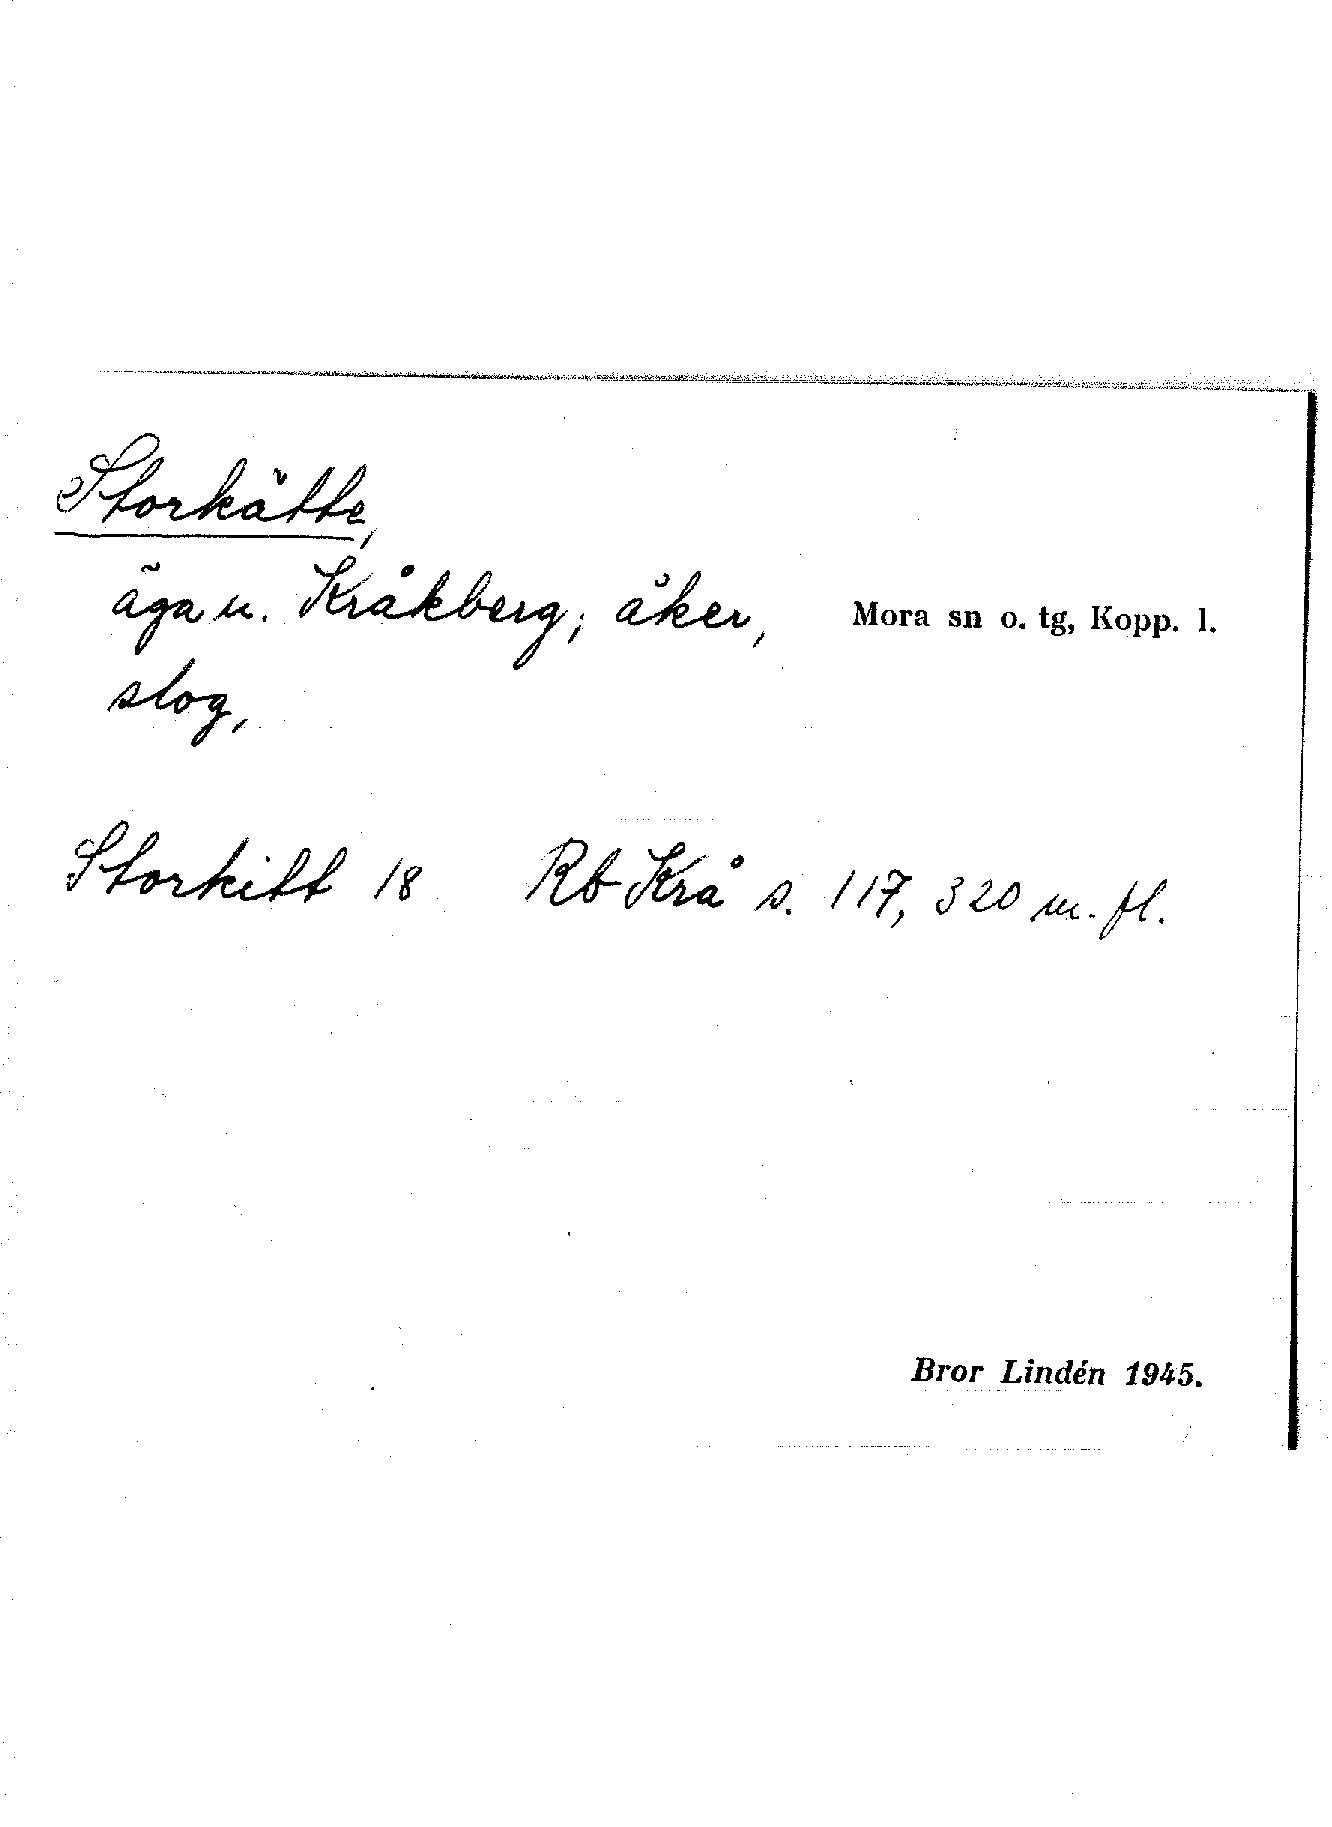 Storkätte,
äga u. Kråkberg; åker, Mora sn o. tg, Kopp. l.
slog,
Storkitt 18 Rb Krå s. 117, 320 m. fl.
Bror Lindén 1945.